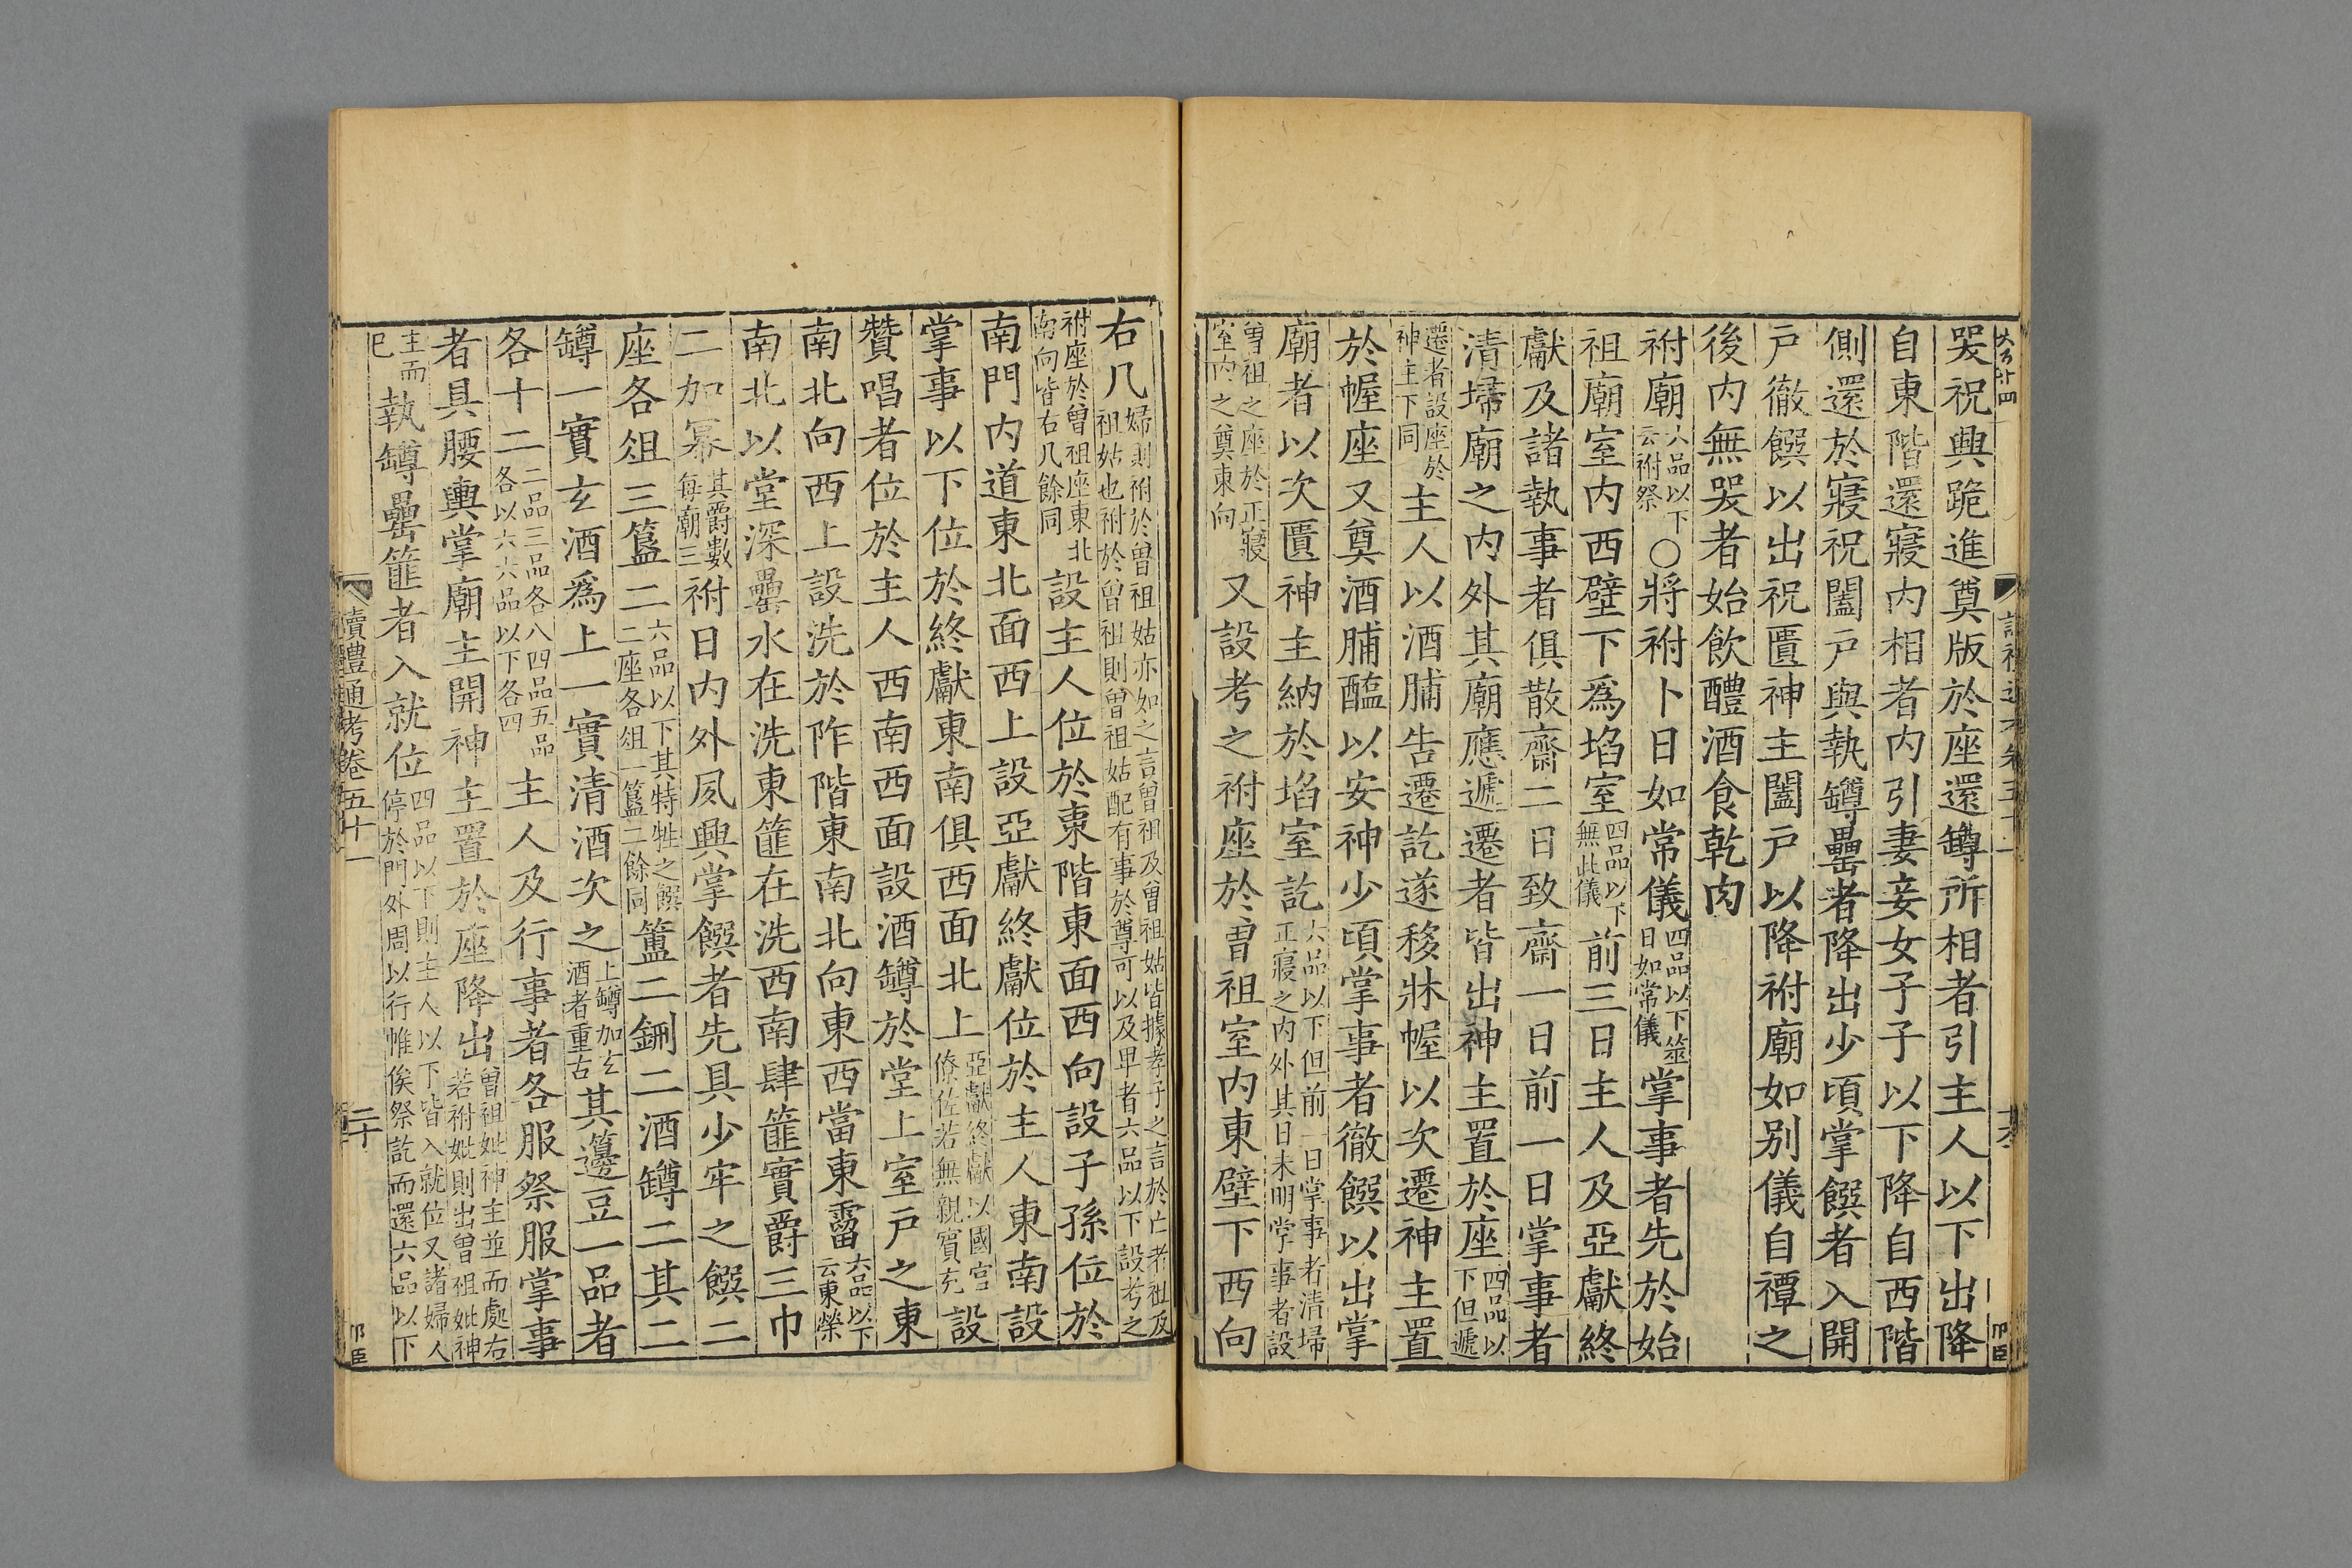 哭祝興跪進奠版於座還罇所相者引主人以下出降
自東階還寢内相者内引妻妾女子子以下降自西階
側還於寢祝闔戶與執罇罍者降出少頃掌饌者入開
戶徹饌以出祝匱神主闔戶以降祔廟如别儀自禫之
後内無哭者始飲醴酒食乾肉
祔廟六品以下云祔祭○將祔卜日如常儀四品以下筮日如常儀掌事者先於始
祖廟室内西壁下爲埳室四品以下無此儀前三日主人及亞獻終
獻及諸執事者俱散齋二日致齋一日前一日掌事者
清埽廟之内外其廟應遞遷者皆出神主置於座四品以下但遞
遷者設座於神主下同主人以酒脯告遷訖遂移牀幄以次遷神主置
於幄座又奠酒脯醢以安神少頃掌事者徹饌以出掌
廟者以次匱神主納於埳室訖六品以下但前一日掌事者清埽正寢之内外其日未明掌事者設
曾祖之座於正寢室内之奠東向又設考之祔座於曾祖室内東壁下西向
右几婦則祔於曾祖姑亦如之言曾祖及曾祖姑皆據孝子之言於亡者祖及祖姑也祔於曾祖則曾祖姑配有事於尊可以及卑者六品以下設考之
祔座於曾祖座東北南向皆右几餘同設主人位於東階東面西向設子孫位於
南門内道東北面西上設亞獻終獻位於主人東南設
掌事以下位於終獻東南俱西面北上亞獻終獻以國官僚佐若無親賓充設
贊唱者位於主人西南西面設酒罇於堂上室戶之東
南北向西上設洗於阼階東南北向東西當東霤六品以下云東榮
南北以堂深罍水在洗東篚在洗西南肆篚實爵三巾
二加冪其爵數每廟三祔日内外夙興掌饌者先具少牢之饌二
座各俎三簋二六品以下其特牲之饌二座各俎一簋二餘同簠二鉶二酒罇二其二
罇一實玄酒爲上一實清酒次之上罇加玄酒者重古其籩豆一品者
各十二二品三品各八四品五品各以六六品以下各四主人及行事者各服祭服掌事
者具腰輿掌廟主開神主置於座降出曾祖妣神主並而處右若祔妣則出曾祖妣神
主而已執罇罍篚者入就位四品以下則主人以下皆入就位又諸婦人停於門外周以行帷俟祭訖而還六品以下
讀禮通考卷五十一
二十